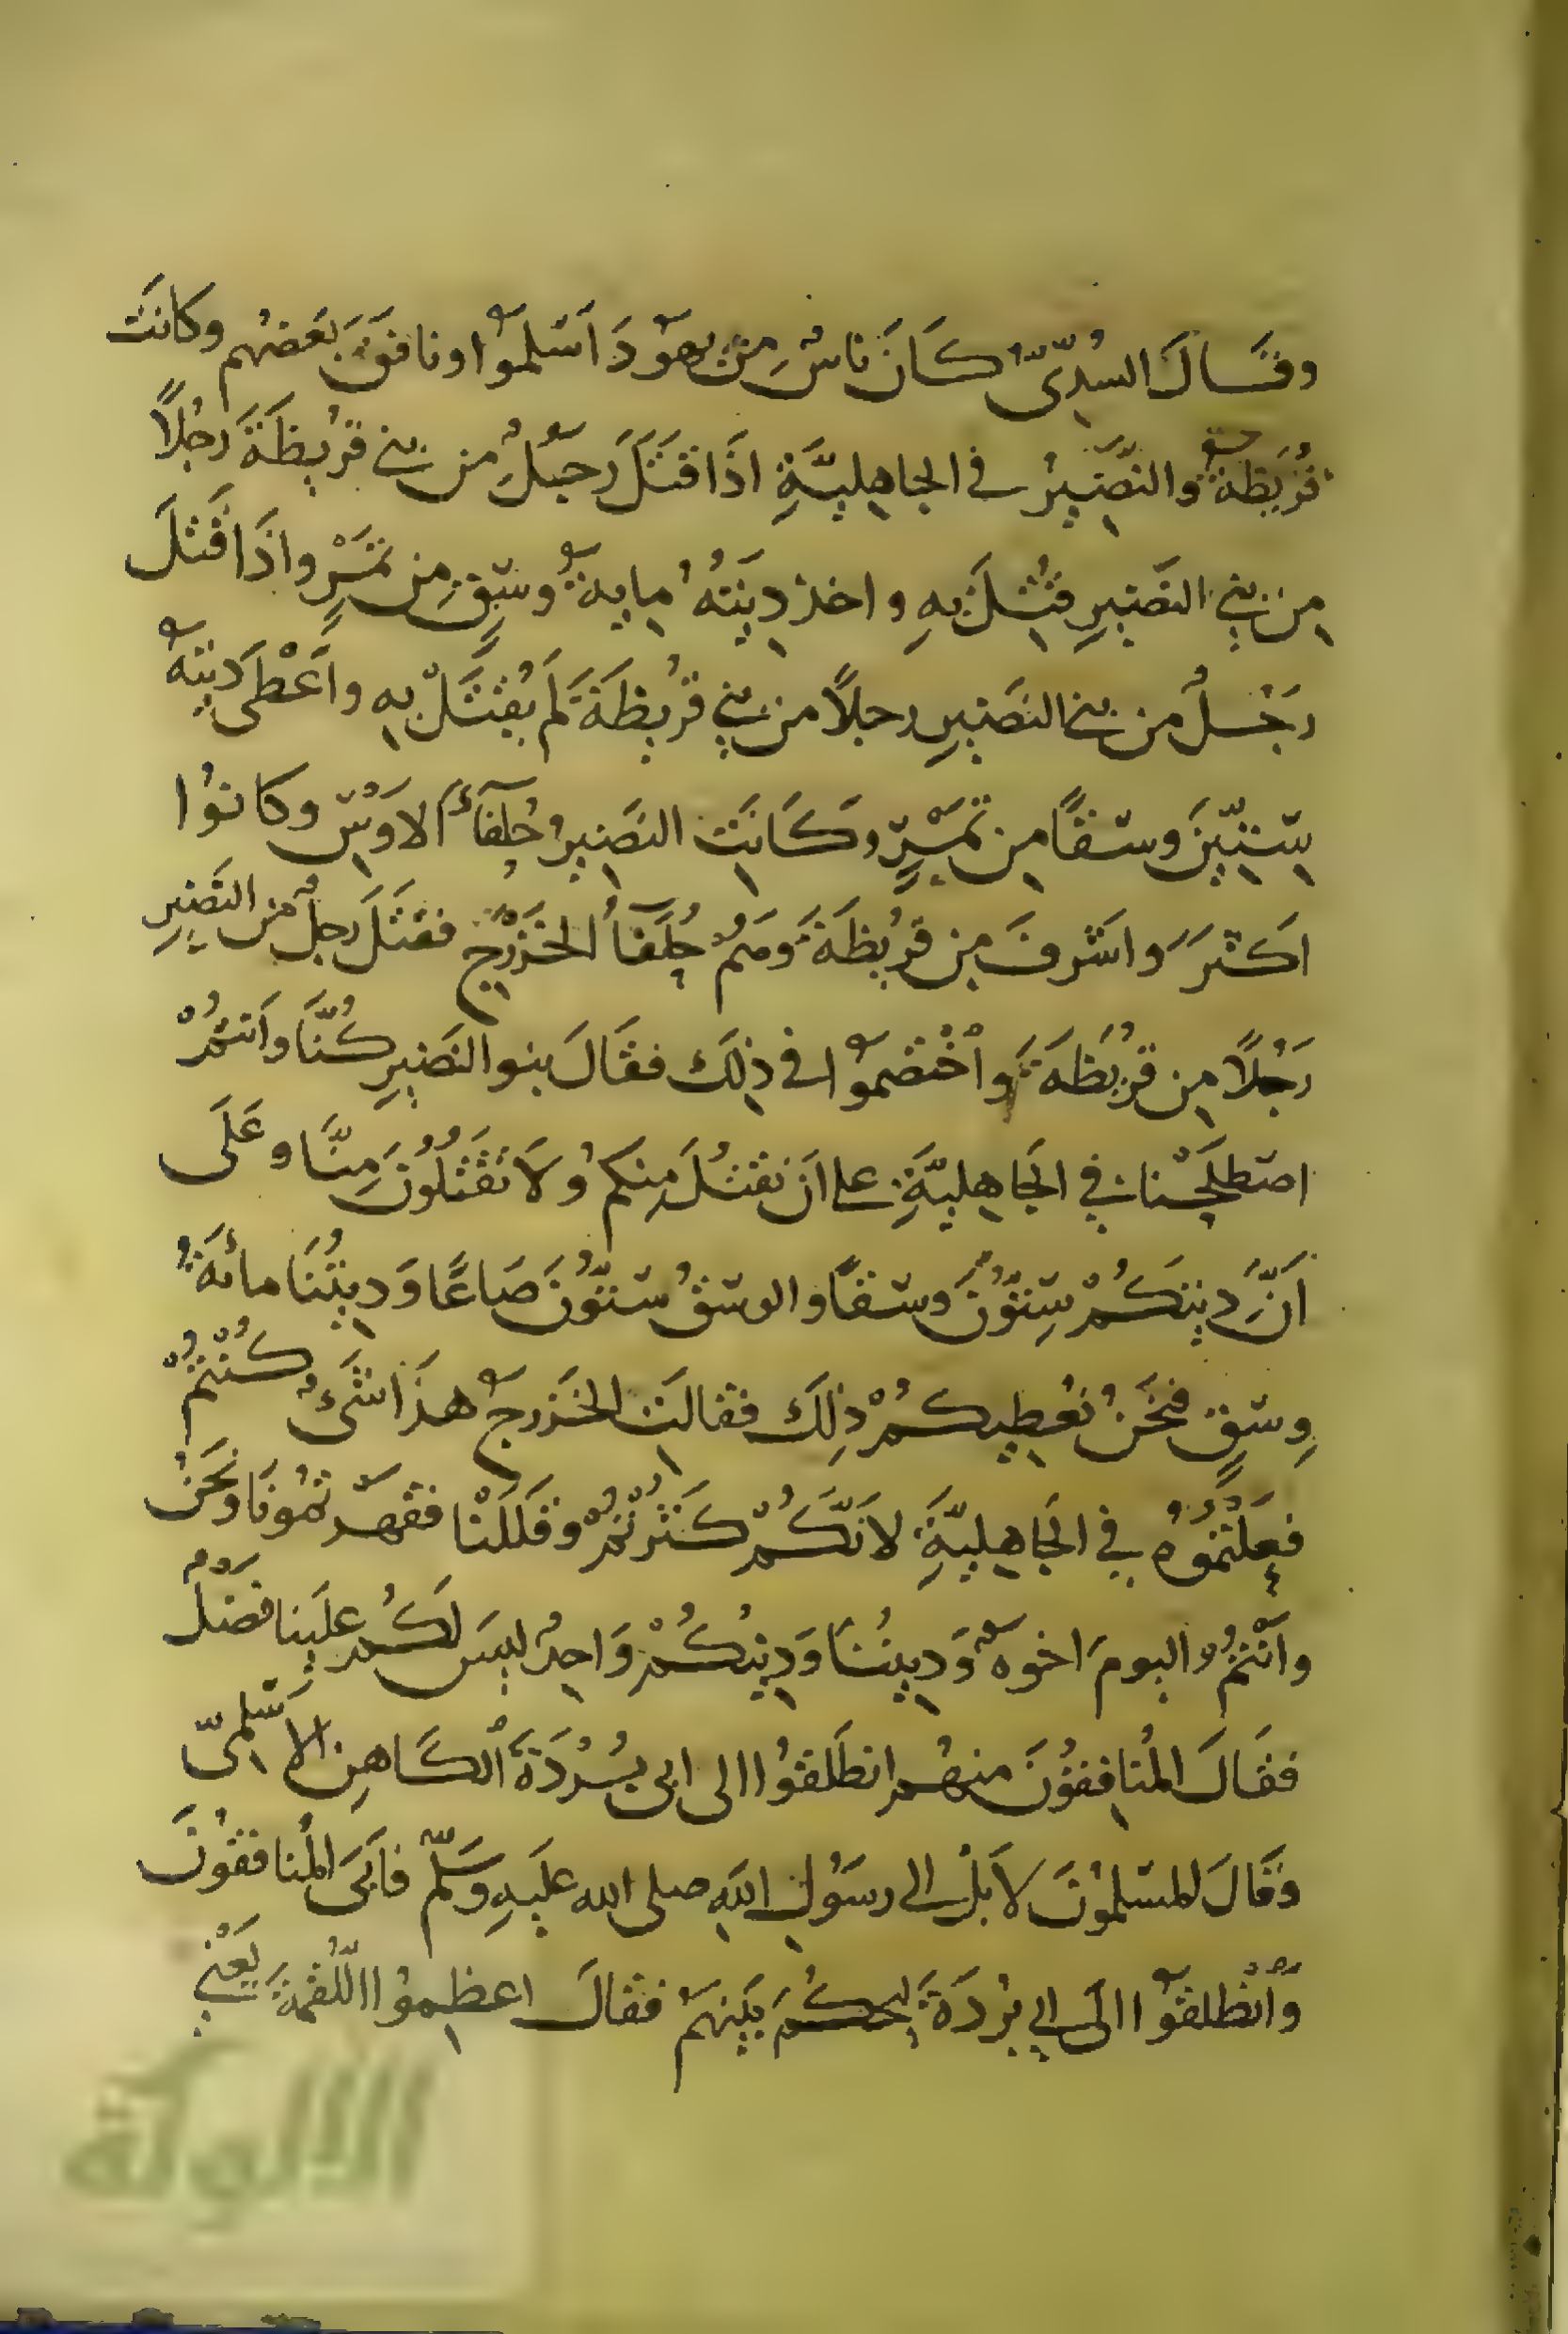 وقَالَ السُدِّىّ كَانَ ناسٌ مِنْ يهُودَ اَسْلَمُوا ونافَقَ بَعْضهُم وكانَتْ
قُرَيظَةُ والنَّضِيرُ في الجاهِلِيَّةِ اذَا قتَلَ رَجُلٌ من بني قُرَيظَةَ رَجُلاً
مِن بَنِي النَّضِيرِ قُتِلَ بِهِ و اخذ دِيَتُهُ مِايةُ وسَقٍ مِن تَمْرٍ واذَا قَتَلَ
رَجُلٌ من بني النضَيرِ رجلاً من بَنِي قُرَيظَةَ لَم يُقْتَلْ بِهِ واَعْطَى دِيتهُ
سِتِّينَ وسْقًا مِن تَمْرٍ وكَانَتِ النضَيرُ حُلَفَآءَ الاَوْسِ وكانوُا
اكَثرَ واشَرفَ مِن قُرَيظَةَ وهَمُ حُلَفَآُ الخَزْرَجِ فقَتَلَ رجلٌ من النَضيرِ
رَجُلاً مِن قُرَيظَةَ واُخْتَصَمُوا في ذلِكَ فقَالَ بنو النضَيرِ كُنَّا واَنتمُرْ
اصطَلَحْنا في الجَاهِليَّةِ على اَن نقتُلَ مِنكمُ ولاَ تَقْتُلُونَ مِنَّا وعَلَى
اَنَّ دِيَتَكُمْ سِتوُّنَ وسَقًا والوسَقُ سُتوُّنَ صَاعًا وَدِيتُنَا مائةَ
وِسَقٍ فنَحْنُ نُعْطِيكُمْ ذلِكَ فقالتِ الخَزرجُ هذَا شَىءٌ كُنْتُمْ
فعَلْتُموُهُ فِي الجَاهِلِيَّةِ لاَنَّكُمْ كَثُرْتُمْ وقَلَلْنا فقهَرّتمُونَا ونَحَنُ
واَنْتُمُ اليومَ اخوهُ وَدِينُنَا وَدِينُكُمْ وَاحِدٌ ليسَ لَكُمْ علَينا فَضْلٌ
فقَالَ المُنافِقوُنَ منهُم انطَلقوُا الى ابى بُرْدَةَ الكَاهِنِ الاَسْلمِىّ
وقَالَ المسْلموُنَ لاَ بَلْ الى رسَوُلِ اللهِ صلى الله عليَهِ وسَلّم فاَبَى المُنافقوُنَ
وَاُنْطَلقوُا الَى ابي بُرْدَةَ ليحكُمَ بَينهَمُ فقالَ اعظِموُا اللُّقمةَ يَعْني
الالوكة